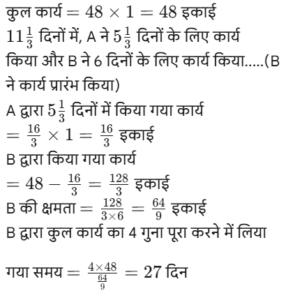 कुल कार्य = 48 × 1 = 48 इकाई
11 1/3 दिनों में, A ने 5 1/3 दिनों के लिए कार्य
किया और B ने 6 दिनों के लिए कार्य किया.....(B
ने कार्य प्रारंभ किया)
A द्वारा 5 1/3 दिनों में किया गया कार्य
= 16/3 × 1 = 16/3 इकाई
B द्वारा किया गया कार्य
= 48 − 16/3 = 128/3 इकाई
B की क्षमता = 128/(3×6) = 64/9 इकाई
B द्वारा कुल कार्य का 4 गुना पूरा करने में लिया
गया समय = (4×48)/(64/9) = 27 दिन